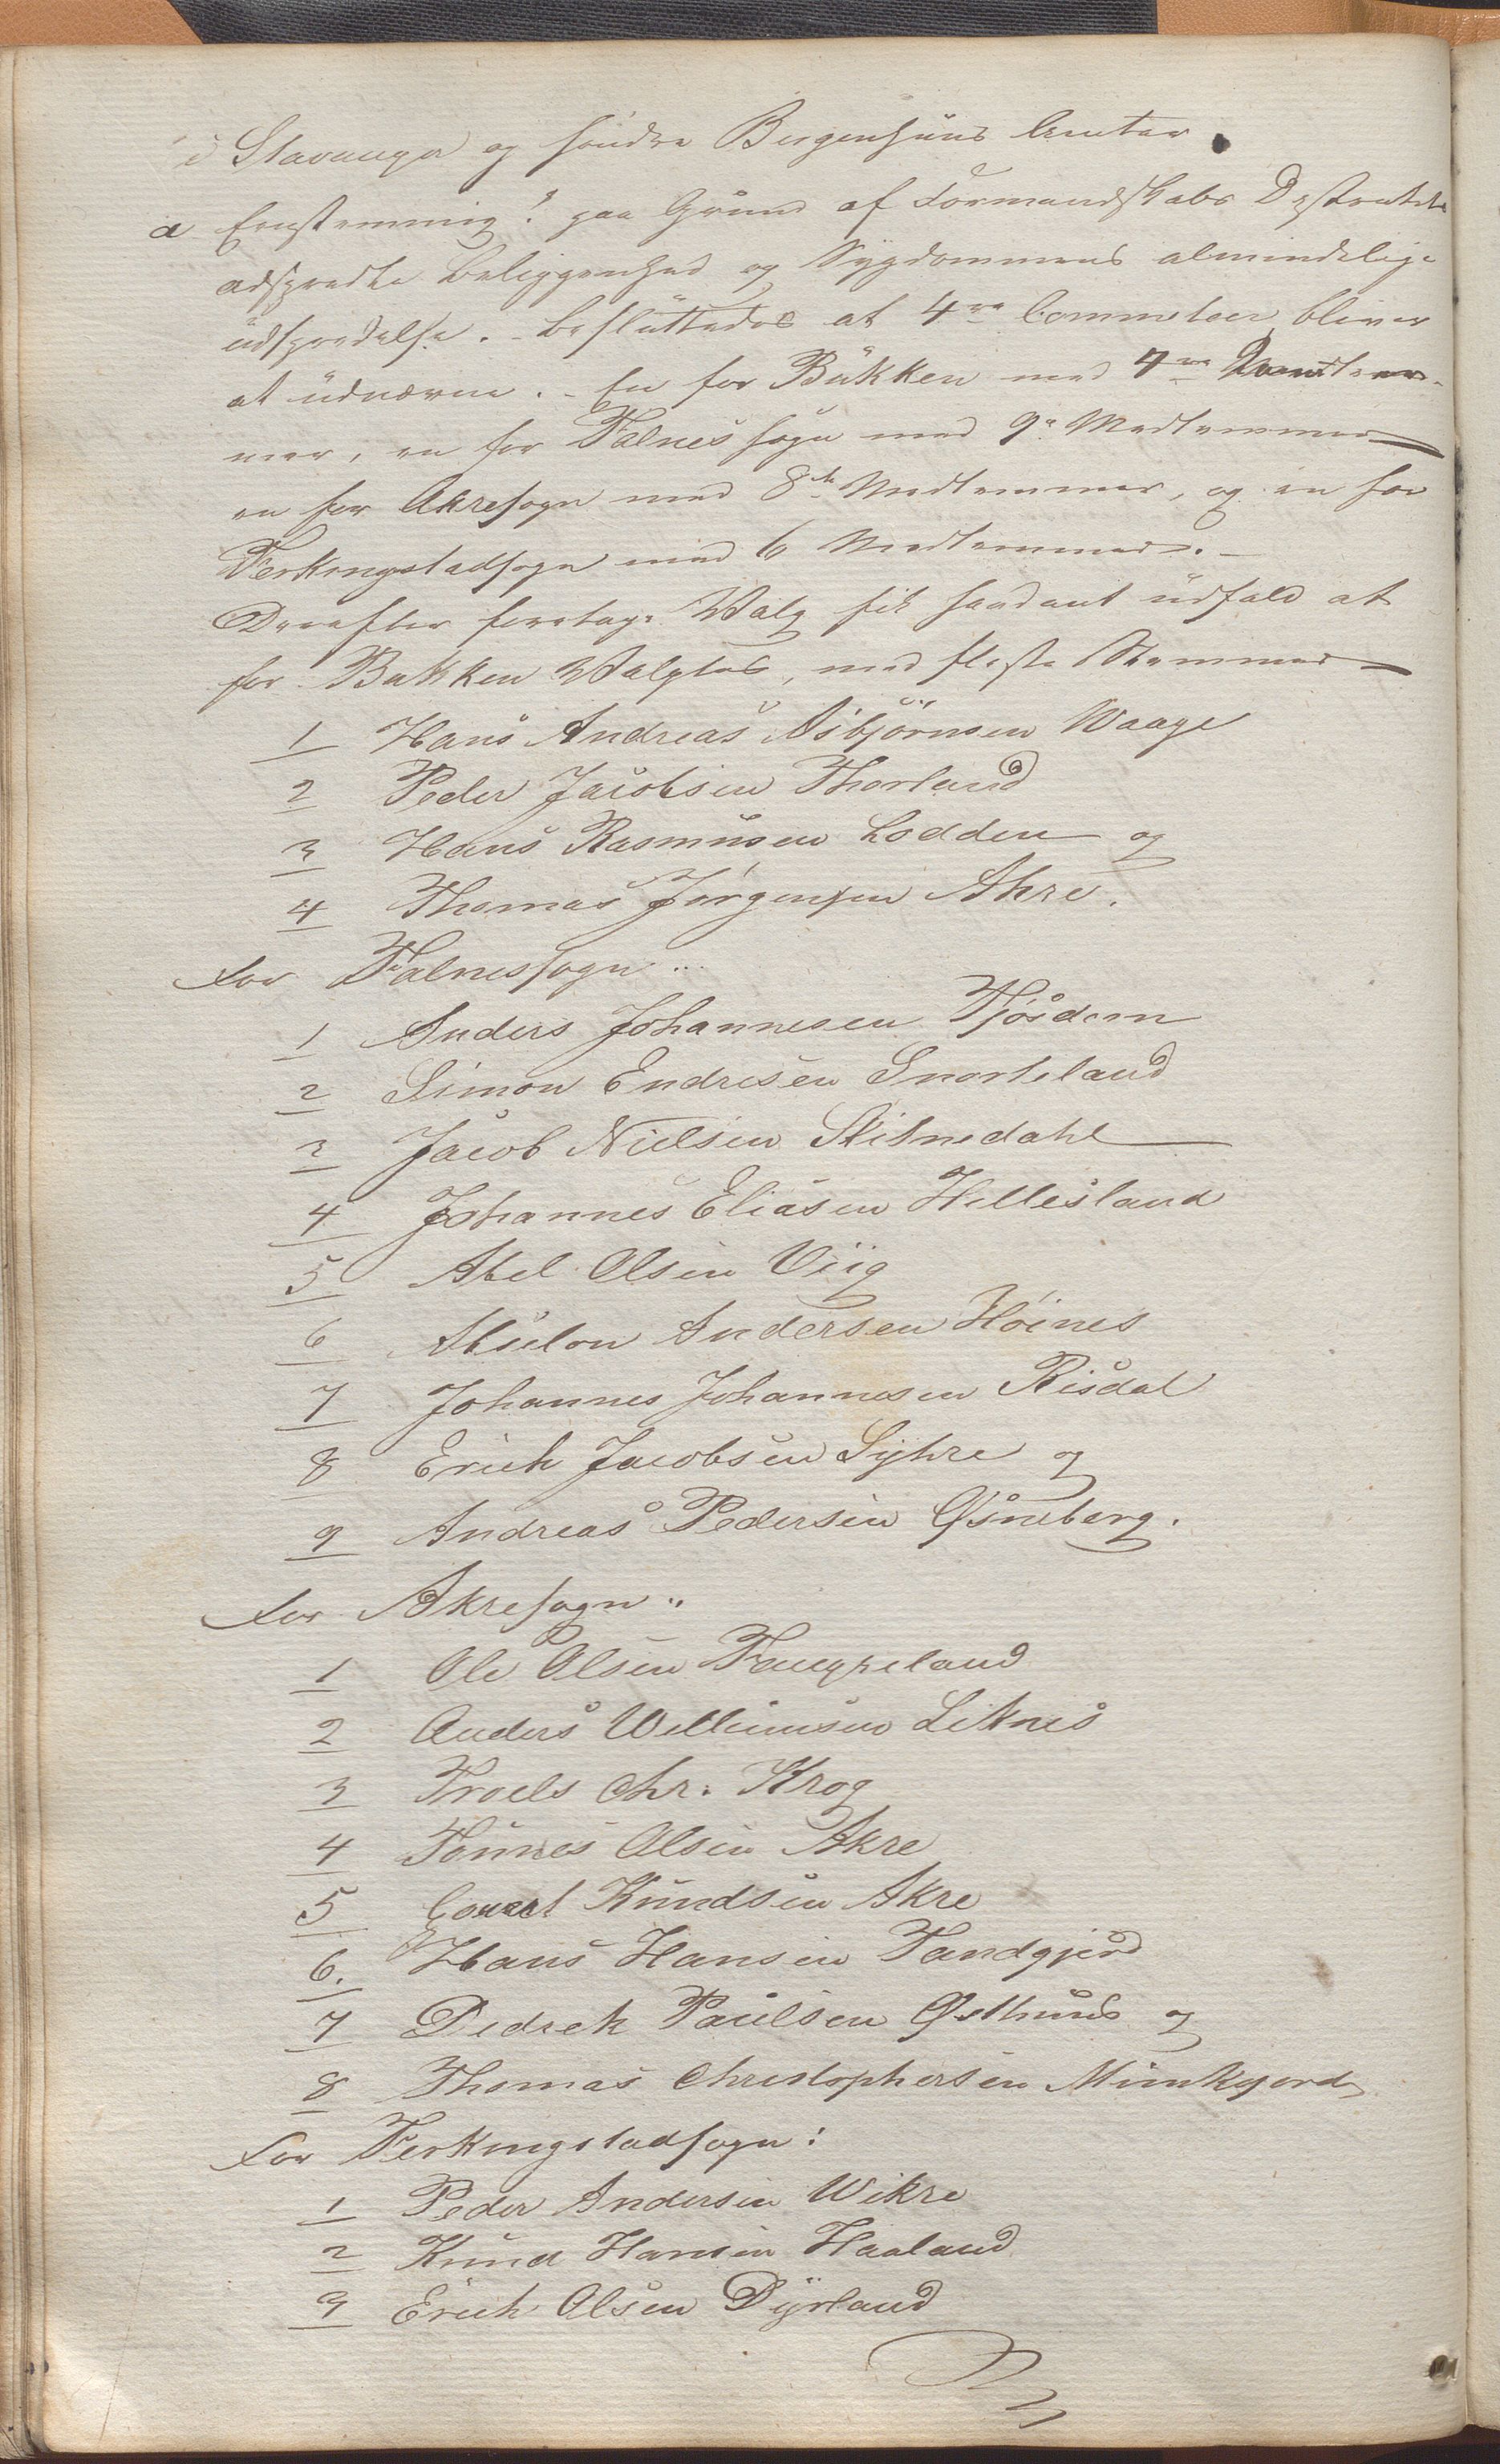 i Stavanger og søndre Bergenhuus Amter
a Eenstemmig! paa Grund af Formandskabs Distriktets
adspredte Beliggenhed og Sygdommens almindelige
udspredelse. - Besluttedes at 4re Commiteer bliver
at udnævne. - En for Bukken med 4re Medlem-
mer, en for Falnes sogn med 9e Medlemmer
en for Akresogn med 8te Medlemmer, og en for
Ferkingstadsogn med 6 Medlemmer. -
Derefter foretage Valg fik saadant udfald at
for Bukken Valgtes, med fleste Stemmer
1 Hans Andreas Asbjørnsen Waage
2 Peder Jacobsen Thorland
3 Hans Rasmusen Lodden og
4 Thomas Jørgensen Ahre.
For Falnessogn ..
1 Anders Johannesen Tjøsdem
2 Simon Endresen Snorteland
3 Jacob Nielsen Stihnedahl
4 Johannes Eliasen Hellesland
5 Abel Olsen Viig
6 Abselon Andersen Høines
7 Johannes Johannesen Risdal
8 Erich Jacobsen Syhre og
9 Andreas Pedersen Øsneberg.
For Akresogn ..
1 Ole Olsen Faugreland
2 Anders Wellumsen Liknes
3 Troels Chr. Krog
4 Tønnes Olsen Akre
5 Govert Knudsen Akre
6. Hans Hansen Tandgjerd
7 Didrek Paulsen Østhuus og
8 Thomas Christophersen Munkejord
For Ferkingstadsogn:
1 Peder Andersen Wikre
2 Knud Hansen Haaland
3 Erich Olsen Dyrland